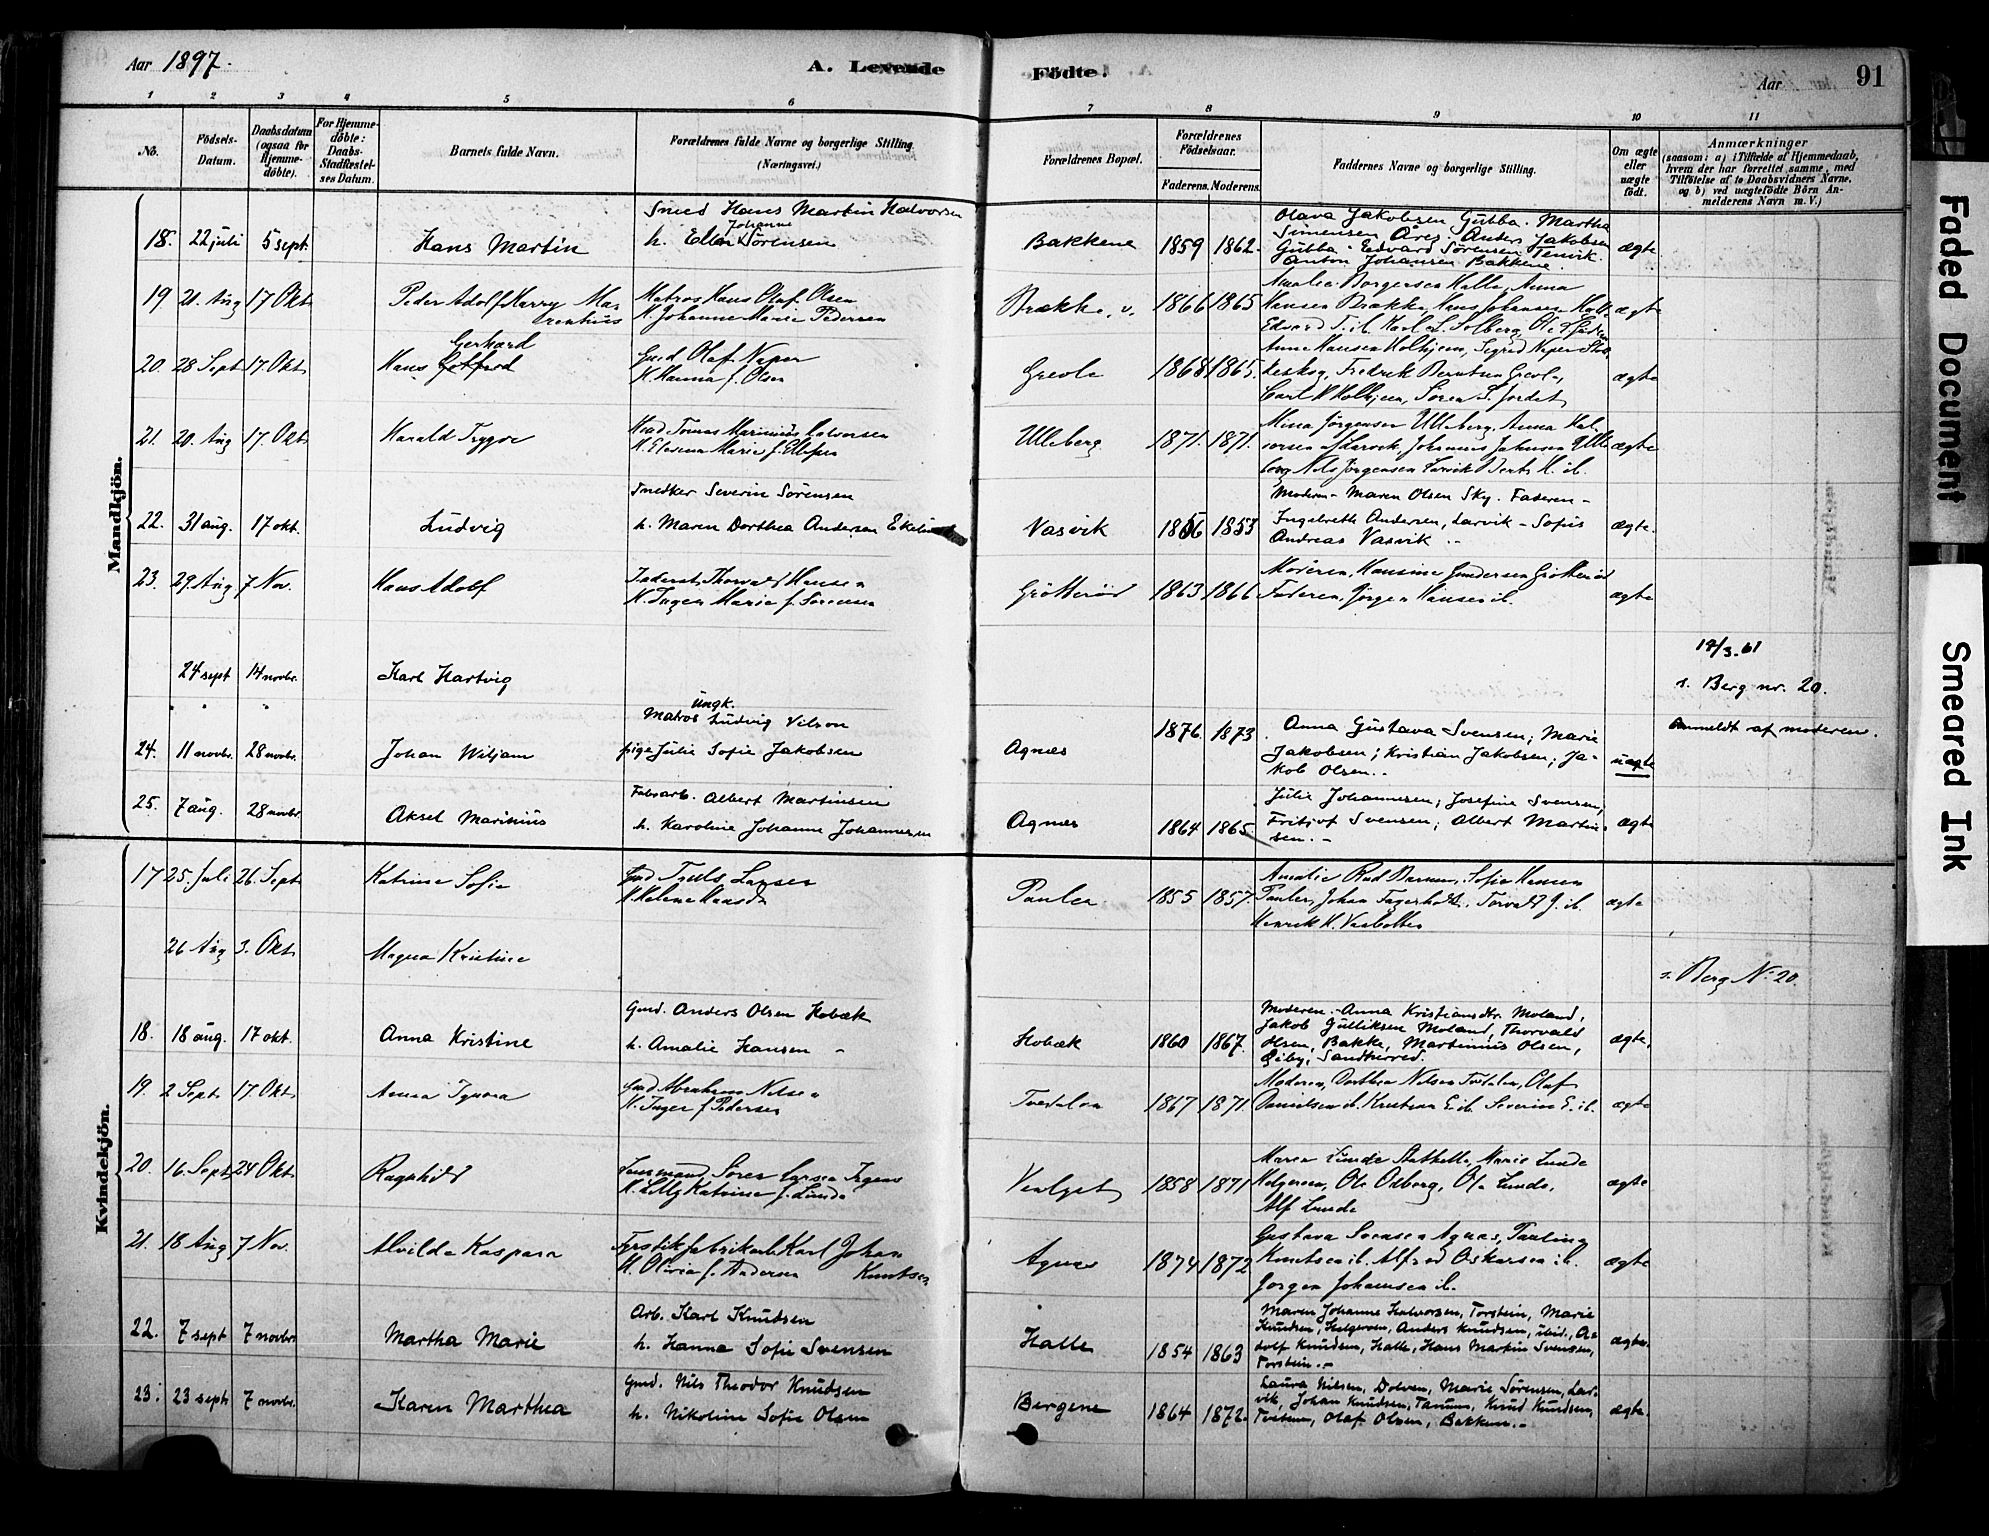 Aar 1897.
A. Levende
Fødte.
Aar
91
1 2 3 4 5 6 7 8 9 10 11
No.
Födsels-Datum.
Daabsdatum (ogsaa for Hjemme-döbte).
For Hjemme-döbte: Daabs-Stadfæstel-ses Datum.
Barnets fulde Navn.
Forældrenes fulde Navne og borgerlige Stilling. (Næringsvei.)
Forældrenes Bopæl.
Forældrenes Födselsaar.
Faderens. Moderens.
Faddernes Navne og borgerlige Stilling.
Om ægte eller uægte født.
Anmærkninger
(saasom: a) i Tilfælde af Hjemmedaab, hvem der har forrettet samme, med Tilföielse af to Daabsvidners Navne, og b) ved uægtefödte Börn An-melderens Navn m. V.)
Mandkjön.
18. 22 juli 5 sept. Hans Martin
Smed Hans Martin Halvorsen
h. Ellen Johanne Sörensen
Bakkene 1859 1862.
Olava Jakobsen Gubba. Martha
Simensen Åres. Anders Jakobsen
Gubba. Edvard Sörensen Tenvik.
Anton Johansen Bakkene.
ægte
19 21. Aug 17 Okt Peder Adolf Harry Ma-
rentius
Matros Hans Olaf Olsen
H. Johanne Marie Pedersen
Brække, v. 1866 1865
Amalie Borgersen Halle, Anna
Hansen Brække, Hans Johansen
Edvard T. ib. Karl L. Solberg
ægte
20. 28 Sept 17. Okt Hans Gerhard
Gmd Olaf Neper
H. Hanna f. Olsen
Greole 1868 1865.
Anne Hansen Holhjem, Sigrid Neper
Fredrik Berntsen Greole,
Carl Holhjem, Sören S. Jordet
ægte
21. 20. Aug 17. Okt Harald Trygve
H. Elevine Marie f. Ellefsen
Ulleberg 1871. 1871.
Mina Jörgensen Ulleberg, Anna Hal-
vorsen Larvik, Johannes Johnsen Ulle
berg Nils Jörgensen Larvik
ægte
22. 31 aug. 17 okt. Ludvig
Snedker Severin Sörensen
h. Maren Dorthea Andersen
Vasvik 1856 1853
Moderen - Maren Olsen Sky. Faderen -
Ingebreth Andersen, Larvik - Sofus
Andreas Vasvik --
ægte.
23. 29 Aug 7 Nov. Hans Adolf
Thorvald Hansen
H. Inger Marie f. Sörensen
Grötteröd 1863 1866
Moderen, Hansine Gundersen Grötteröd
Faderen, Jörgen Hansen ib.
ægte
24 sept 14 novbr. Karl Hartvig
14/3.61
s. Berg nr. 20.
24. 11 novbr. 28 novbr. Johan Wiljam
ungk.
Matros Ludvig Vilson
pige Julie Sofie Jakobsen
Agnes 1876. 1873
Anna Gustava Svensen; Marie
Jakobsen; Kristian Jakobsen; Ja-
kob Olsen.--
uægte
Anmeldt af moderen.
25. 7 aug. 28 novbr. Aksel Marinius
Fabr.arb. Albert Martinsen
h. Karoline Johanne Johannesen
Agnes 1864 1865
Julie Johannesen; Josefine Svensen;
Fritjof Svensen; Albert Martin-
sen.-
ægte
Kvindekjön.
17 25. Juli 26. Sept Katrine Sofie
Gmd Truls Larsen
Pauler 1855 1857.
Amalie Rud Barnum, Sofie Hansen
Pauler, Johan Fagerholt, Torvald J. ib.
ægte
26 Aug 3. Okt Magna Kristine
s. Berg N: 20.
18. 18 aug. 17 okt. Anna Kristine
Gmd. Anders Olsen Hobæk
h. Amalie Hansen -
Hobæk 1860 1867.
Moderen.- Anna Kristiansdtr. Moland,
Jakob Gulliksen Moland, Thorvald
Olsen, Bakke, Martinius Olsen,
Sandherred.
ægte.
19. 2 Sept 17. Okt Anna Ignora
Gmd Abraham Nilsen
H. Inger f. Pedersen
Tvedalen 1867 1871.
Moderen, Dorthea Nilsen Tvedalen, Olaf
Danielsen ib. Kristian E. ib. Severin E. ib.
ægte
20. 16. Sept 24 Okt Ragnhild
Lensmand Sören Larsen
H. Lilly Katrine f. Lunde
1858 1871
Maren Lunde Stathelle, Marie Lunde
Helgeroa, Ole Osberg, Ola Lunde,
Alf Lunde
ægte
21. 18 Aug 7 Nov. Alvilde Kaspara
Fyrstikfabrikarb Karl Johan Knutsen
H. Olivia f. Andersen
Agnes 1874 1872
Gustava Svensen Agnæs, Pauline
Knutsen ib. Alfred Oskarsen ib.
Jörgen Johansen ib.
ægte
22. 7 sept 7 novbr. Martha Marie
Arb. Karl Knudsen
h. Hanna Sofie Svensen
Halle 1854 1863
Maren Johanne Halvorsen, Torstein, Marie
Knudsen, Helgeroen, Anders Knudsen, ibid., A-
dolf Knudsen, Halle, Hans Martin Svensen,
Torstein.--
ægte.
23. 23 sept 7 novbr. Karen Marthea
Gmd. Nils Theodor Knudsen
h. Nikoline Sofie Olsen
Bergene 1864 1872.
Laura Nilsen, Dolven, Marie Sörensen, Lar-
vik, Johan Knudsen, Tanum, Knud Knudsen,
Tvetene, Olaf Olsen, Bakken.-
ægte.
Faded Document
Smeared Ink